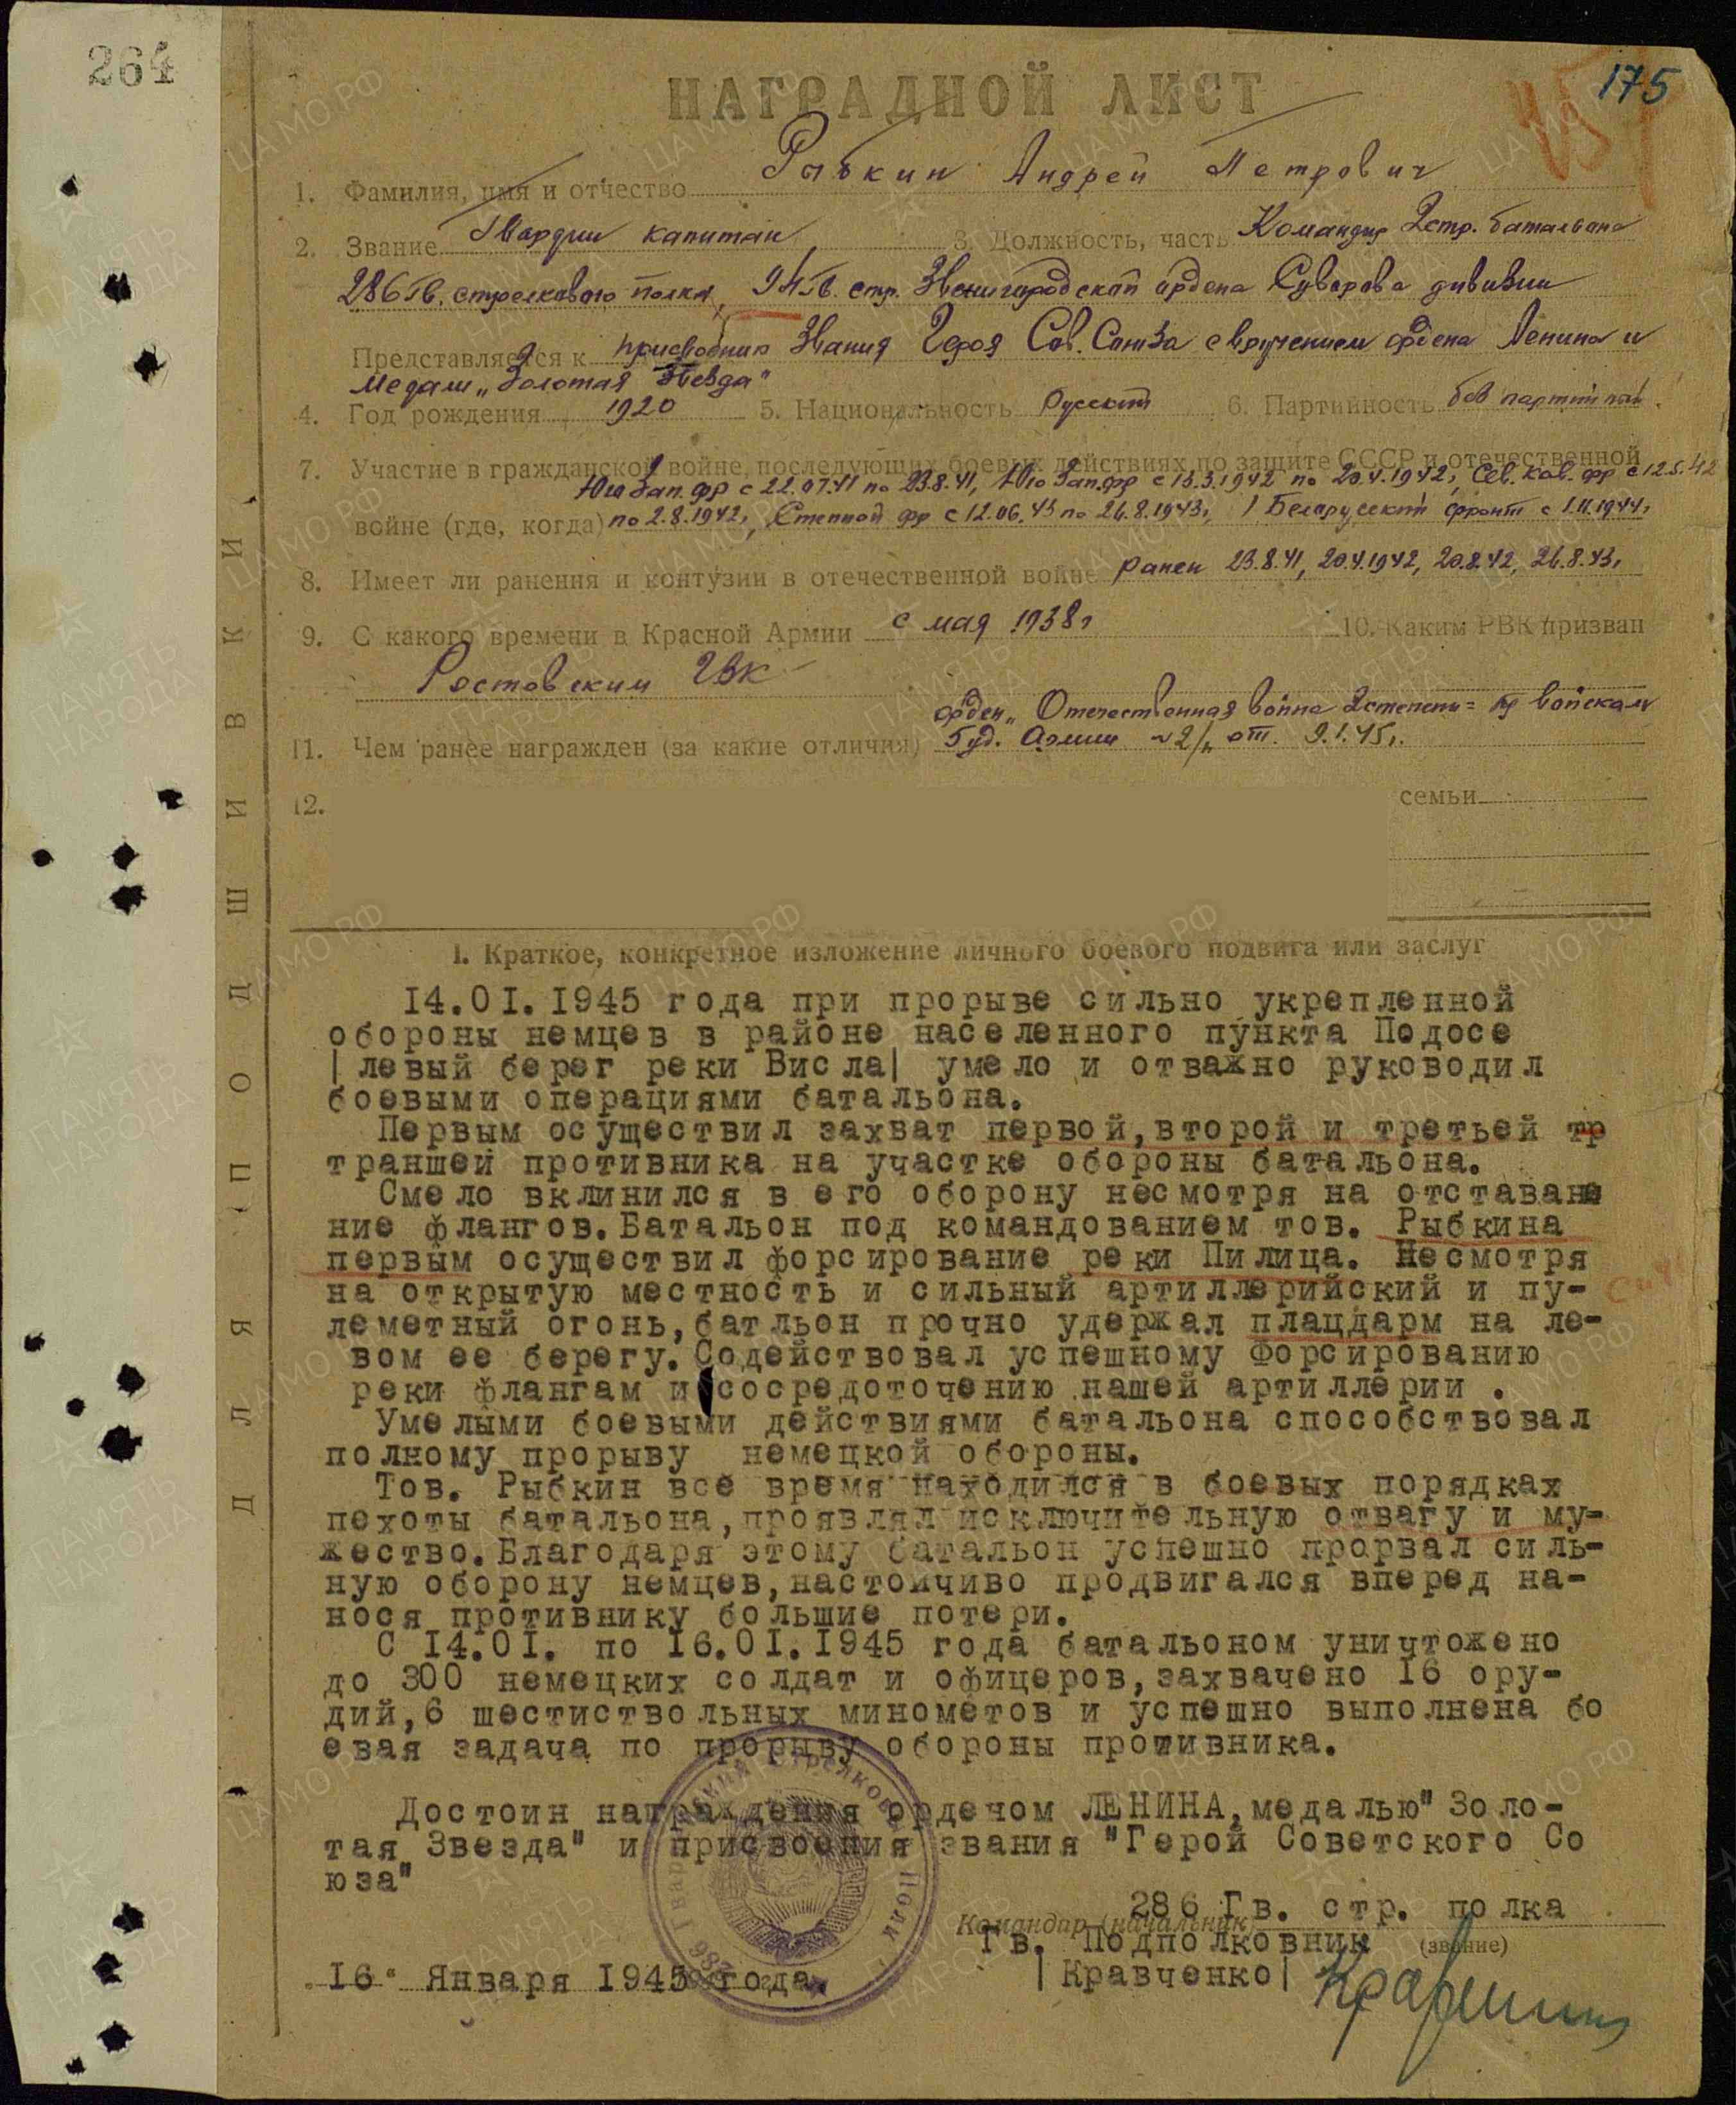 264
175
НАГРАДНОЙ ЛИСТ
1. Фамилия, имя и отчество Рыбкин Андрей Петрович
2. Звание Гвардии капитан, 3. Должность, часть Командир 2 стр. батальона
286 Гв. стрелкового полка, 94 Гв. стр. Звенигородской ордена Суворова дивизии
Представляется к присвоению Звания Героя Сов. Союза с вручением ордена Ленина и
медали „Золотая Звезда"
4. Год рождения 1920 5. Национальность русский 6. Партийность
7. Участие в гражданской войне, последующих боевых действиях по защите СССР и отечественной
Юго Зап. фр с 22.07.41 по 23.8.41, Юго Зап. фр с 15.3.1942 по 20.4.1942, Сев. Кав. фр с 12.5.42
войне (где, когда) по 2.8.1942, Степной фр с 12.06.43 по 26.8.1943, 1 Белорусский фронт с 1.11.1944,
8. Имеет ли ранения и контузии в отечественной войне ранен 23.8.41, 20.4.1942, 20.8.42, 26.8.43,
9. С какого времени в Красной Армии с мая 1938 г 10. Каким РВК призван
Ростовским ГВК
орден „Отечественная война 2 степени = войскам
11. Чем ранее награжден (за какие отличия) 5 уд. Армии №2/н от 9.1.45г.
12. семьи
ДЛЯ ПОДШИВКИ
1. Краткое, конкретное изложение личного боевого подвига или заслуг
14.01.1945 года при прорыве сильно укрепленной
обороны немцев в районе населенного пункта Подосе
|левый берег реки Висла| умело и отважно руководил
боевыми операциями батальона.
Первым осуществил захват первой,второй и третьей тр
траншей противника на участке обороны батальона.
Смело вклинился в его оборону несмотря на отставане
ние флангов.Батальон под командованием тов. Рыбкина
первым осуществил форсирование реки Пилица. Несмотря
на открытую местность и сильный артиллерийский и пу-
леметный огонь,батльон прочно удержал плацдарм на ле-
вом ее берегу.Содействовал успешному форсированию
реки флангам и сосредоточению нашей артиллерии .
Умелыми боевыми действиями батальона способствовал
полному прорыву немецкой обороны.
Тов. Рыбкин все время находился в боевых порядках
пехоты батальона,проявлял исключительную отвагу и му-
жество.Благодаря этому батальон успешно прорвал силь-
ную оборону немцев,настойчиво продвигался вперед на-
нося противнику большие потери.
С 14.01. по 16.01.1945 года батальоном уничтожено
до 300 немецких солдат и офицеров,захвачено 16 ору-
дий,6 шестиствольных минометов и успешно выполнена бо
евая задача по прорыву обороны противника.
Достоин награждения орденом ЛЕНИНА,медалью"Золо-
тая Звезда" и присвоения звания "Герой Советского Со
юза"
286 Гв. стр. полка
Командир (начальник)
Гв. Подполковник (звание)
16 Января 1945 года |Кравченко|